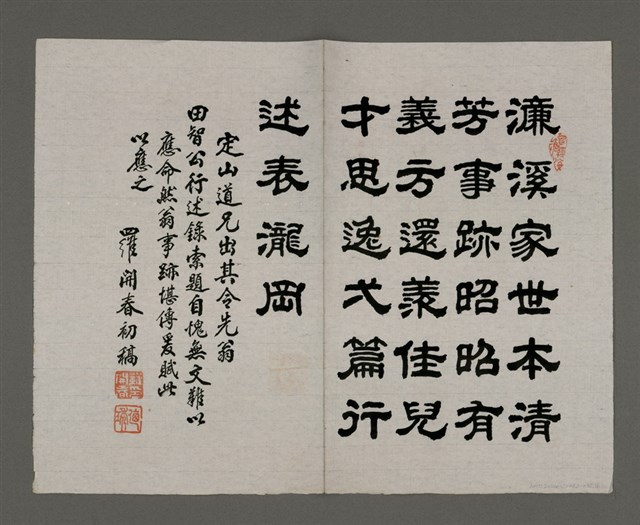 濂溪家世本清
芳事跡昭昭有
義方還羨佳兒
才思逸弌篇行
述表瀧岡
定山道兄出其令先翁
田智公行述錄索題自愧無文難以
應命然翁事跡堪傳爰賦此
以應之
羅開春初稿